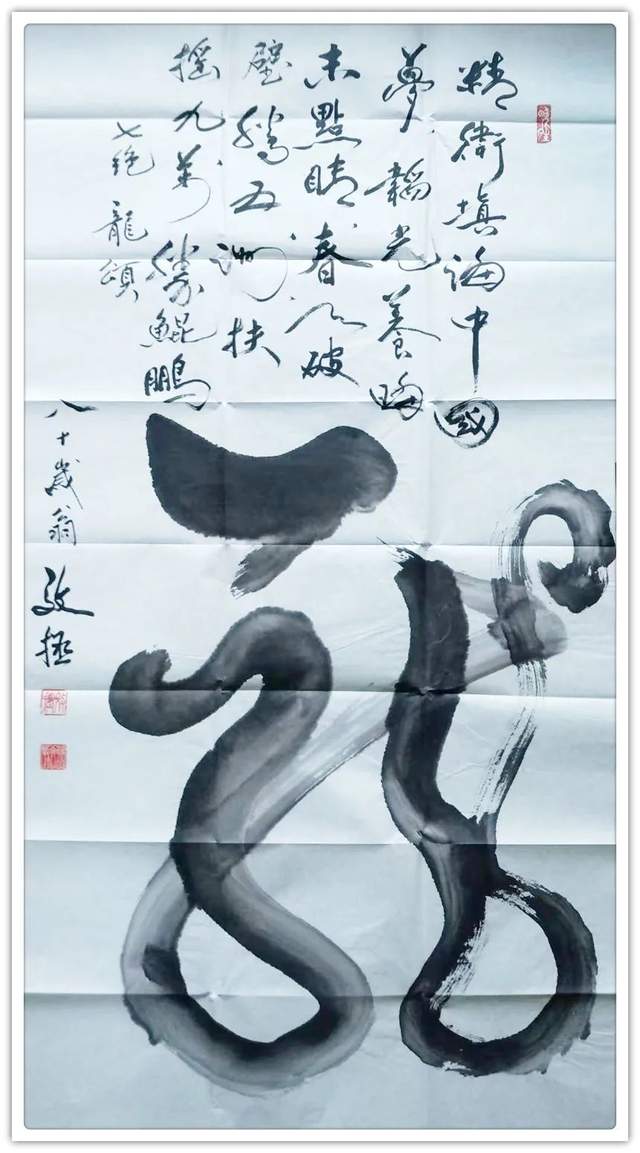 精衛填海中國
夢韜光養晦
未點睛春破
壁騰五洲扶
搖九萬勝鯤鵬
七絕龍頌
龍
八十歲翁